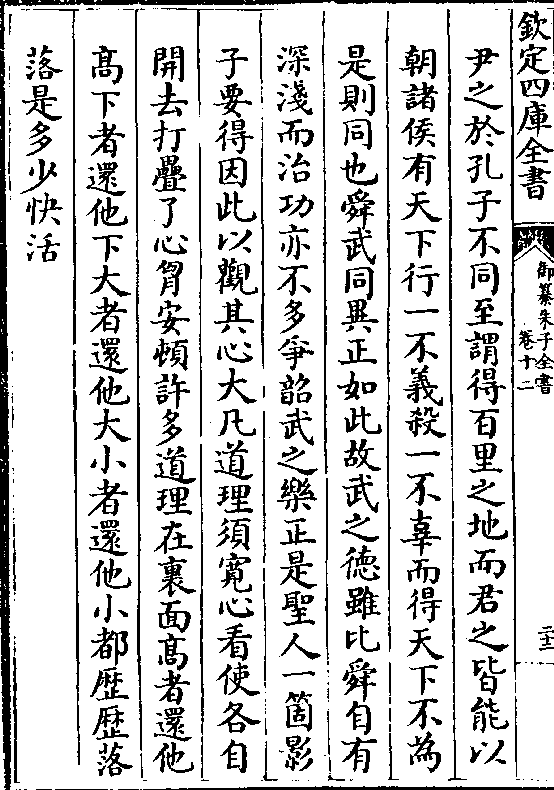 欽定四庫全書
御纂朱子全書
卷十二
二十三
尹之於孔子不同至謂得百里之地而君之皆能以
朝諸侯有天下行一不義殺一不辜而得天下不為
是則同也舜武同異正如此故武之德雖比舜自有
深淺而治功亦不多爭韶武之樂正是聖人一箇影
子要得因此以觀其心大凡道理須寛心看使各自
開去打疊了心胷安頓許多道理在裏面髙者還他
髙下者還他下大者還他大小者還他小都歴歴落
落是多少快活